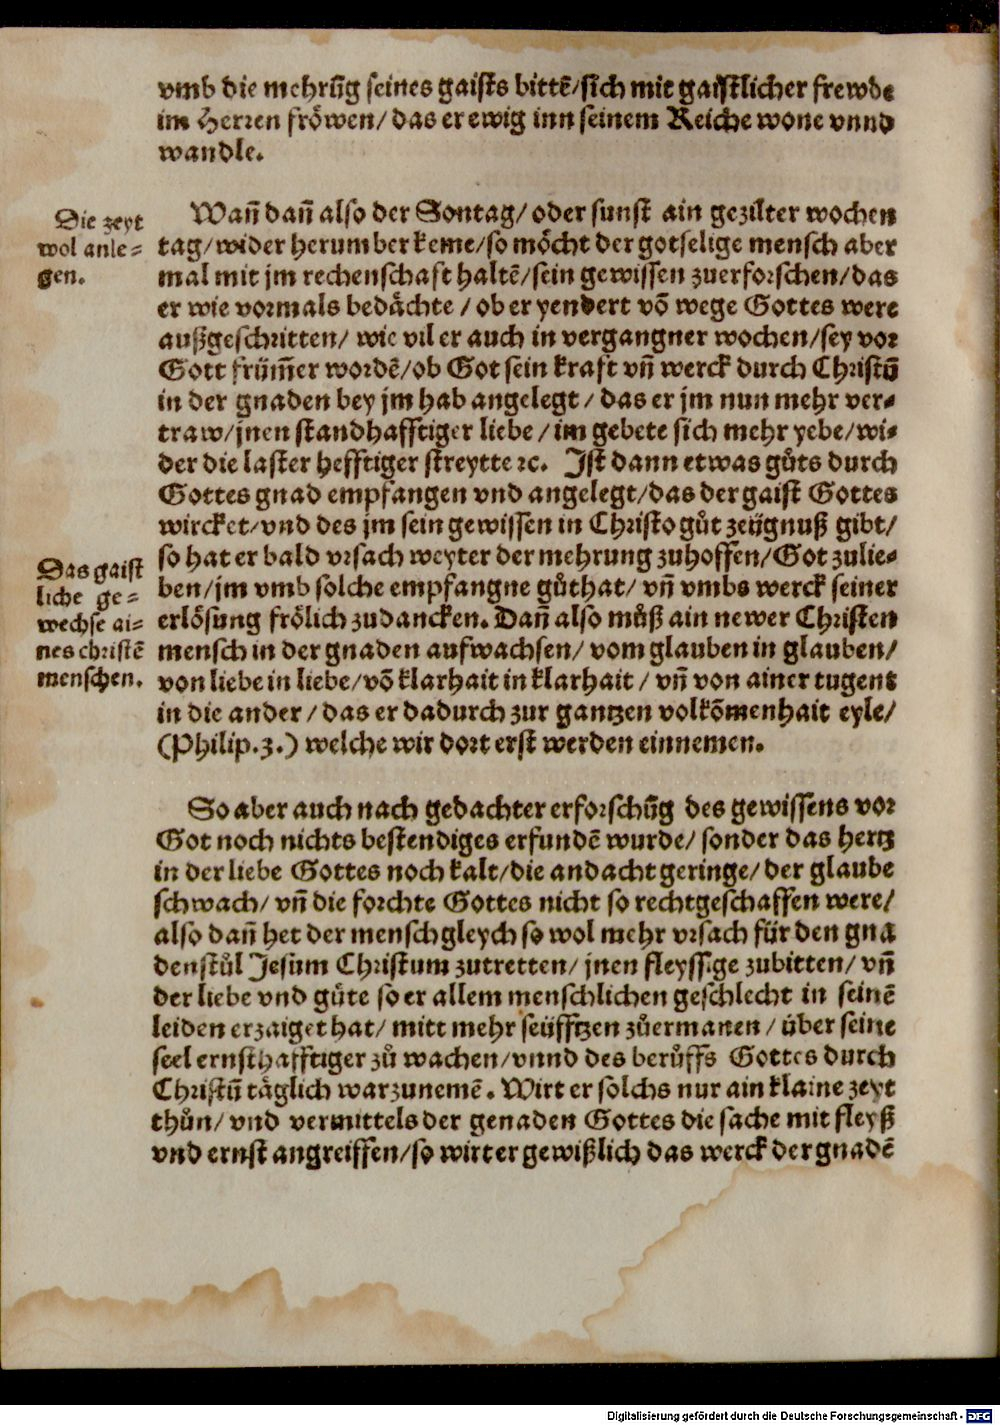 vmb die mehrūg seines gaists bittē/sich mit gaistlicher frewde
im Herren fröwen/ das er ewig inn seinem Reiche wone vnnd
wandle.
Die zeyt
wol anle-
gen.
Wañ dañ also der Sontag/ oder sunst ain gezilter wochen
tag/wider herumber keme/so möcht der gotselige mensch aber
mal mit jm rechenschaft haltē/sein gewissen zuerforschen/das
er wie vormals bedächte / ob er yendert vō wege Gottes were
außgeschritten/ wie vil er auch in vergangner wochen/sey vor
Gott frümmer wordē/ob Got sein kraft vñ werck durch Christū
in der gnaden bey jm hab angelegt / das er jm nun mehr ver-
traw/jnen standhafftiger liebe / im gebete sich mehr yebe/wi-
der die laster hefftiger streytte ꝛc. Ist dann etwas gůts durch
Gottes gnad empfangen vnd angelegt/das der gaist Gottes
wircket/vnd des jm sein gewissen in Christo gůt zeügnuß gibt/
so hat er bald vrsach weyter der mehrung zuhoffen/Got zulie-
ben/jm vmb solche empfangne gůthat/ vñ vmbs werck seiner
erlösung frölich zudancken. Dañ also můß ain newer Christen
mensch in der gnaden aufwachsen/ vom glauben in glauben/
von liebe in liebe/vō klarhait in klarhait / vñ von ainer tugent
in die ander / das er dadurch zur gantzen volkōmenhait eyle/
(Philip.3.) welche wir dort erst werden einnemen.
Das gaist
liche ge-
wechse ai-
nes christē
menschen.
So aber auch nach gedachter erforschūg des gewissens vor
Got noch nichts bestendiges erfundē wurde/ sonder das hertz
in der liebe Gottes noch kalt/die andacht geringe/ der glaube
schwach/ vñ die forchte Gottes nicht so rechtgeschaffen were/
also dañ het der mensch gleych so wol mehr vrsach für den gna
denstůl Jesum Christum zutretten/ jnen fleyssige zubitten/ vñ
der liebe vnd gůte so er allem menschlichen geschlecht in seinē
leiden erzaiget hat/ mitt mehr seüfftzen zůermanen / über seine
seel ernsthafftiger zů wachen/vnnd des berůffs Gottes durch
Christū täglich warzunemē. Wirt er solchs nur ain klaine zeyt
thůn/ vnd vermittels der genaden Gottes die sache mit fleyß
vnd ernst angreiffen/so wirt er gewißlich das werck der gnadē
Digitalisierung gefördert durch die Deutsche Forschungsgemeinschaft - DFG